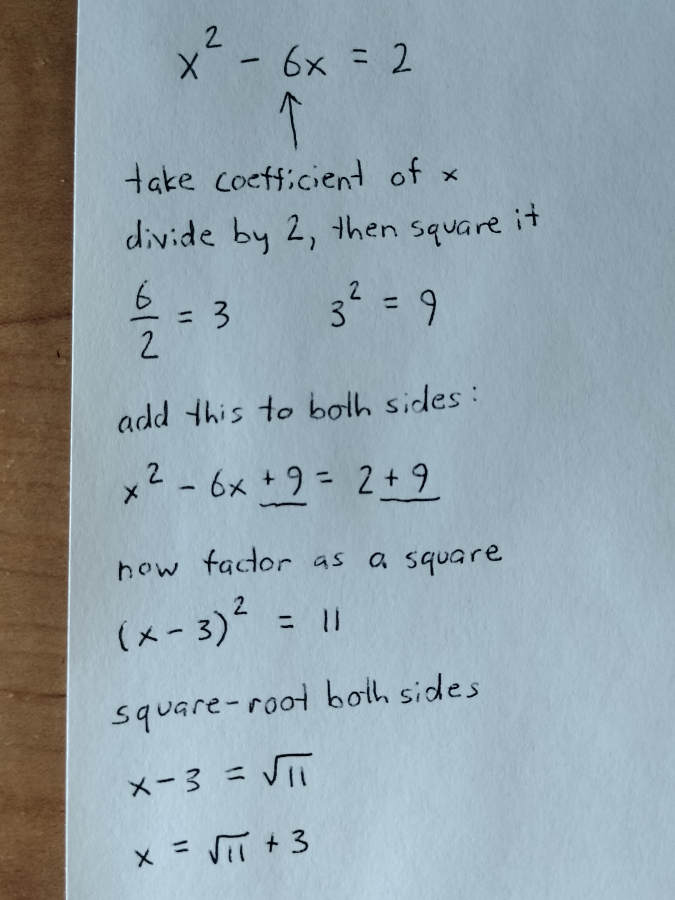 x² - 6x = 2
↑
take coefficient of x
divide by 2, then square it
6/2 = 3    3² = 9
add this to both sides:
x² - 6x + 9 = 2 + 9
now factor as a square
(x - 3)² = 11
square-root both sides
x - 3 = √11
x = √11 + 3